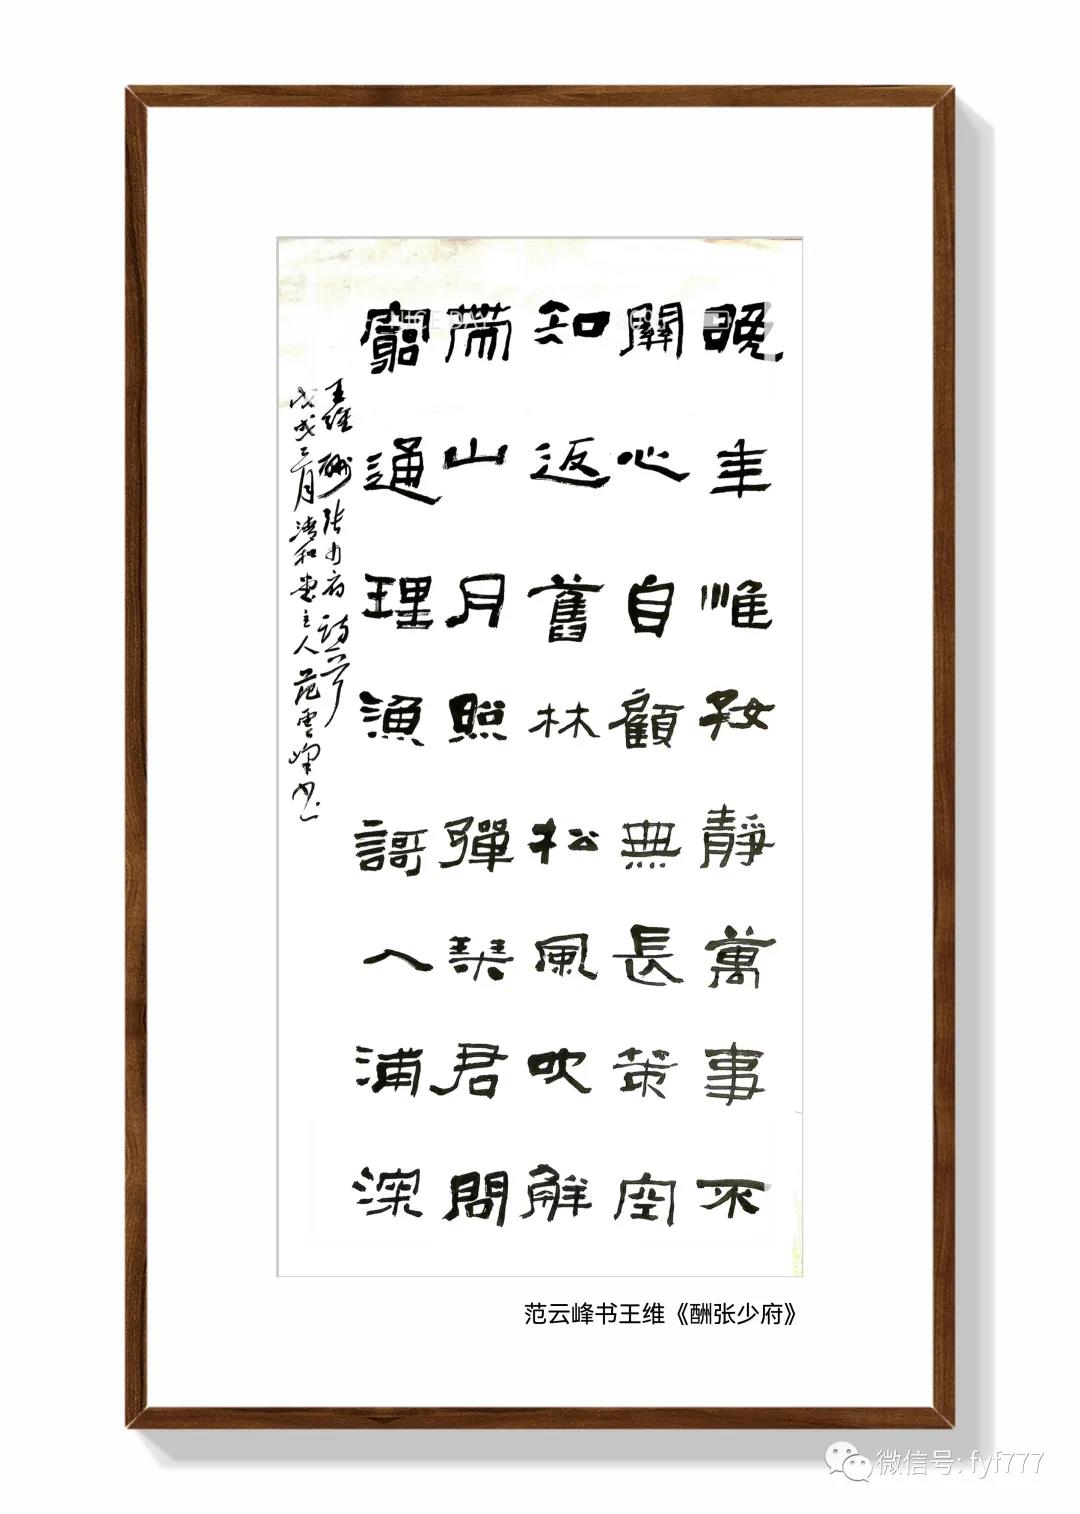 晚年惟好靜萬事不
關心自顧無長策空
知返舊林松風吹解
帶山月照彈琴君問
窮通理漁謌入浦深
王維酬张少府詩一首
戊戌三月清和堂主人范雲峰书
范云峰书王维《酬张少府》
微信号: fyf777